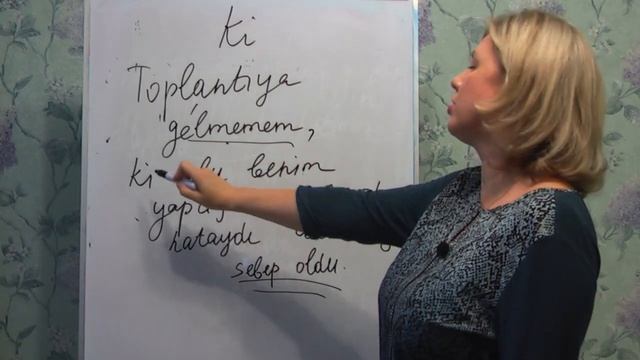 ki
Toplantıya
gelmemem,
ki bu benim
hataydı
sebep oldu.